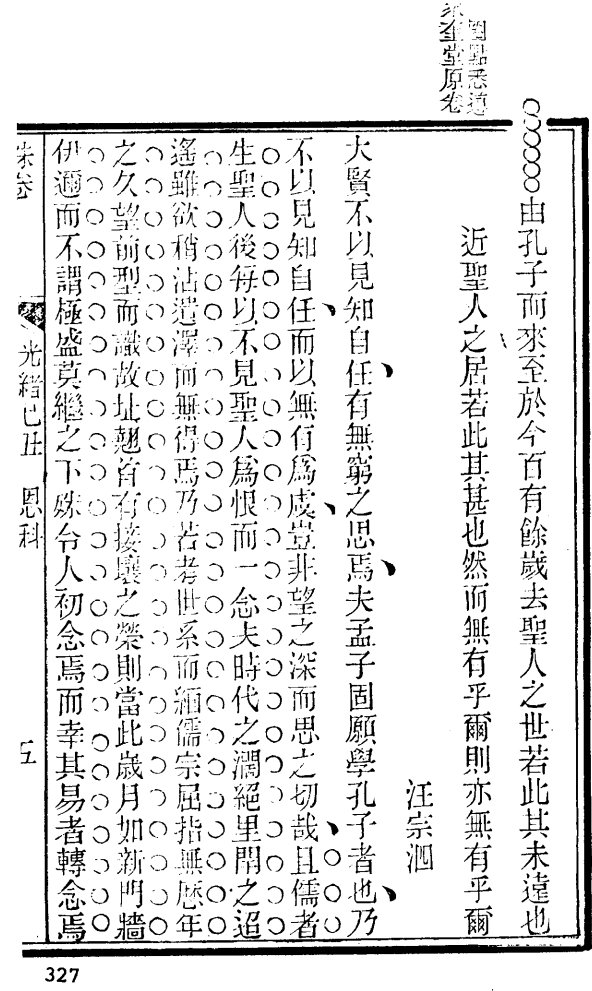 圈點悉遵
聚奎堂原卷
由孔子而來至於今百有餘歲去聖人之世若此其未遠也
近聖人之居若此其甚也然而無有乎爾則亦無有乎爾
汪宗泗
大賢不以見知自任有無窮之思焉夫孟子固願學孔子者也乃
不以見知自任而以無有為虞豈非望之深而思之切哉且儒者
生聖人後每以不見聖人為恨而一念夫時代之濶絕里閈之迢
遙雖欲稍沾遺澤而無得焉乃若考世系而緬儒宗屈指無歷年
之久望前型而識故址翹首有接壤之榮則當此歲月如新門牆
伊邇而不謂極盛莫繼之下殊令人初念焉而幸其易者轉念焉
硃卷 光緒己丑 恩科 五
327